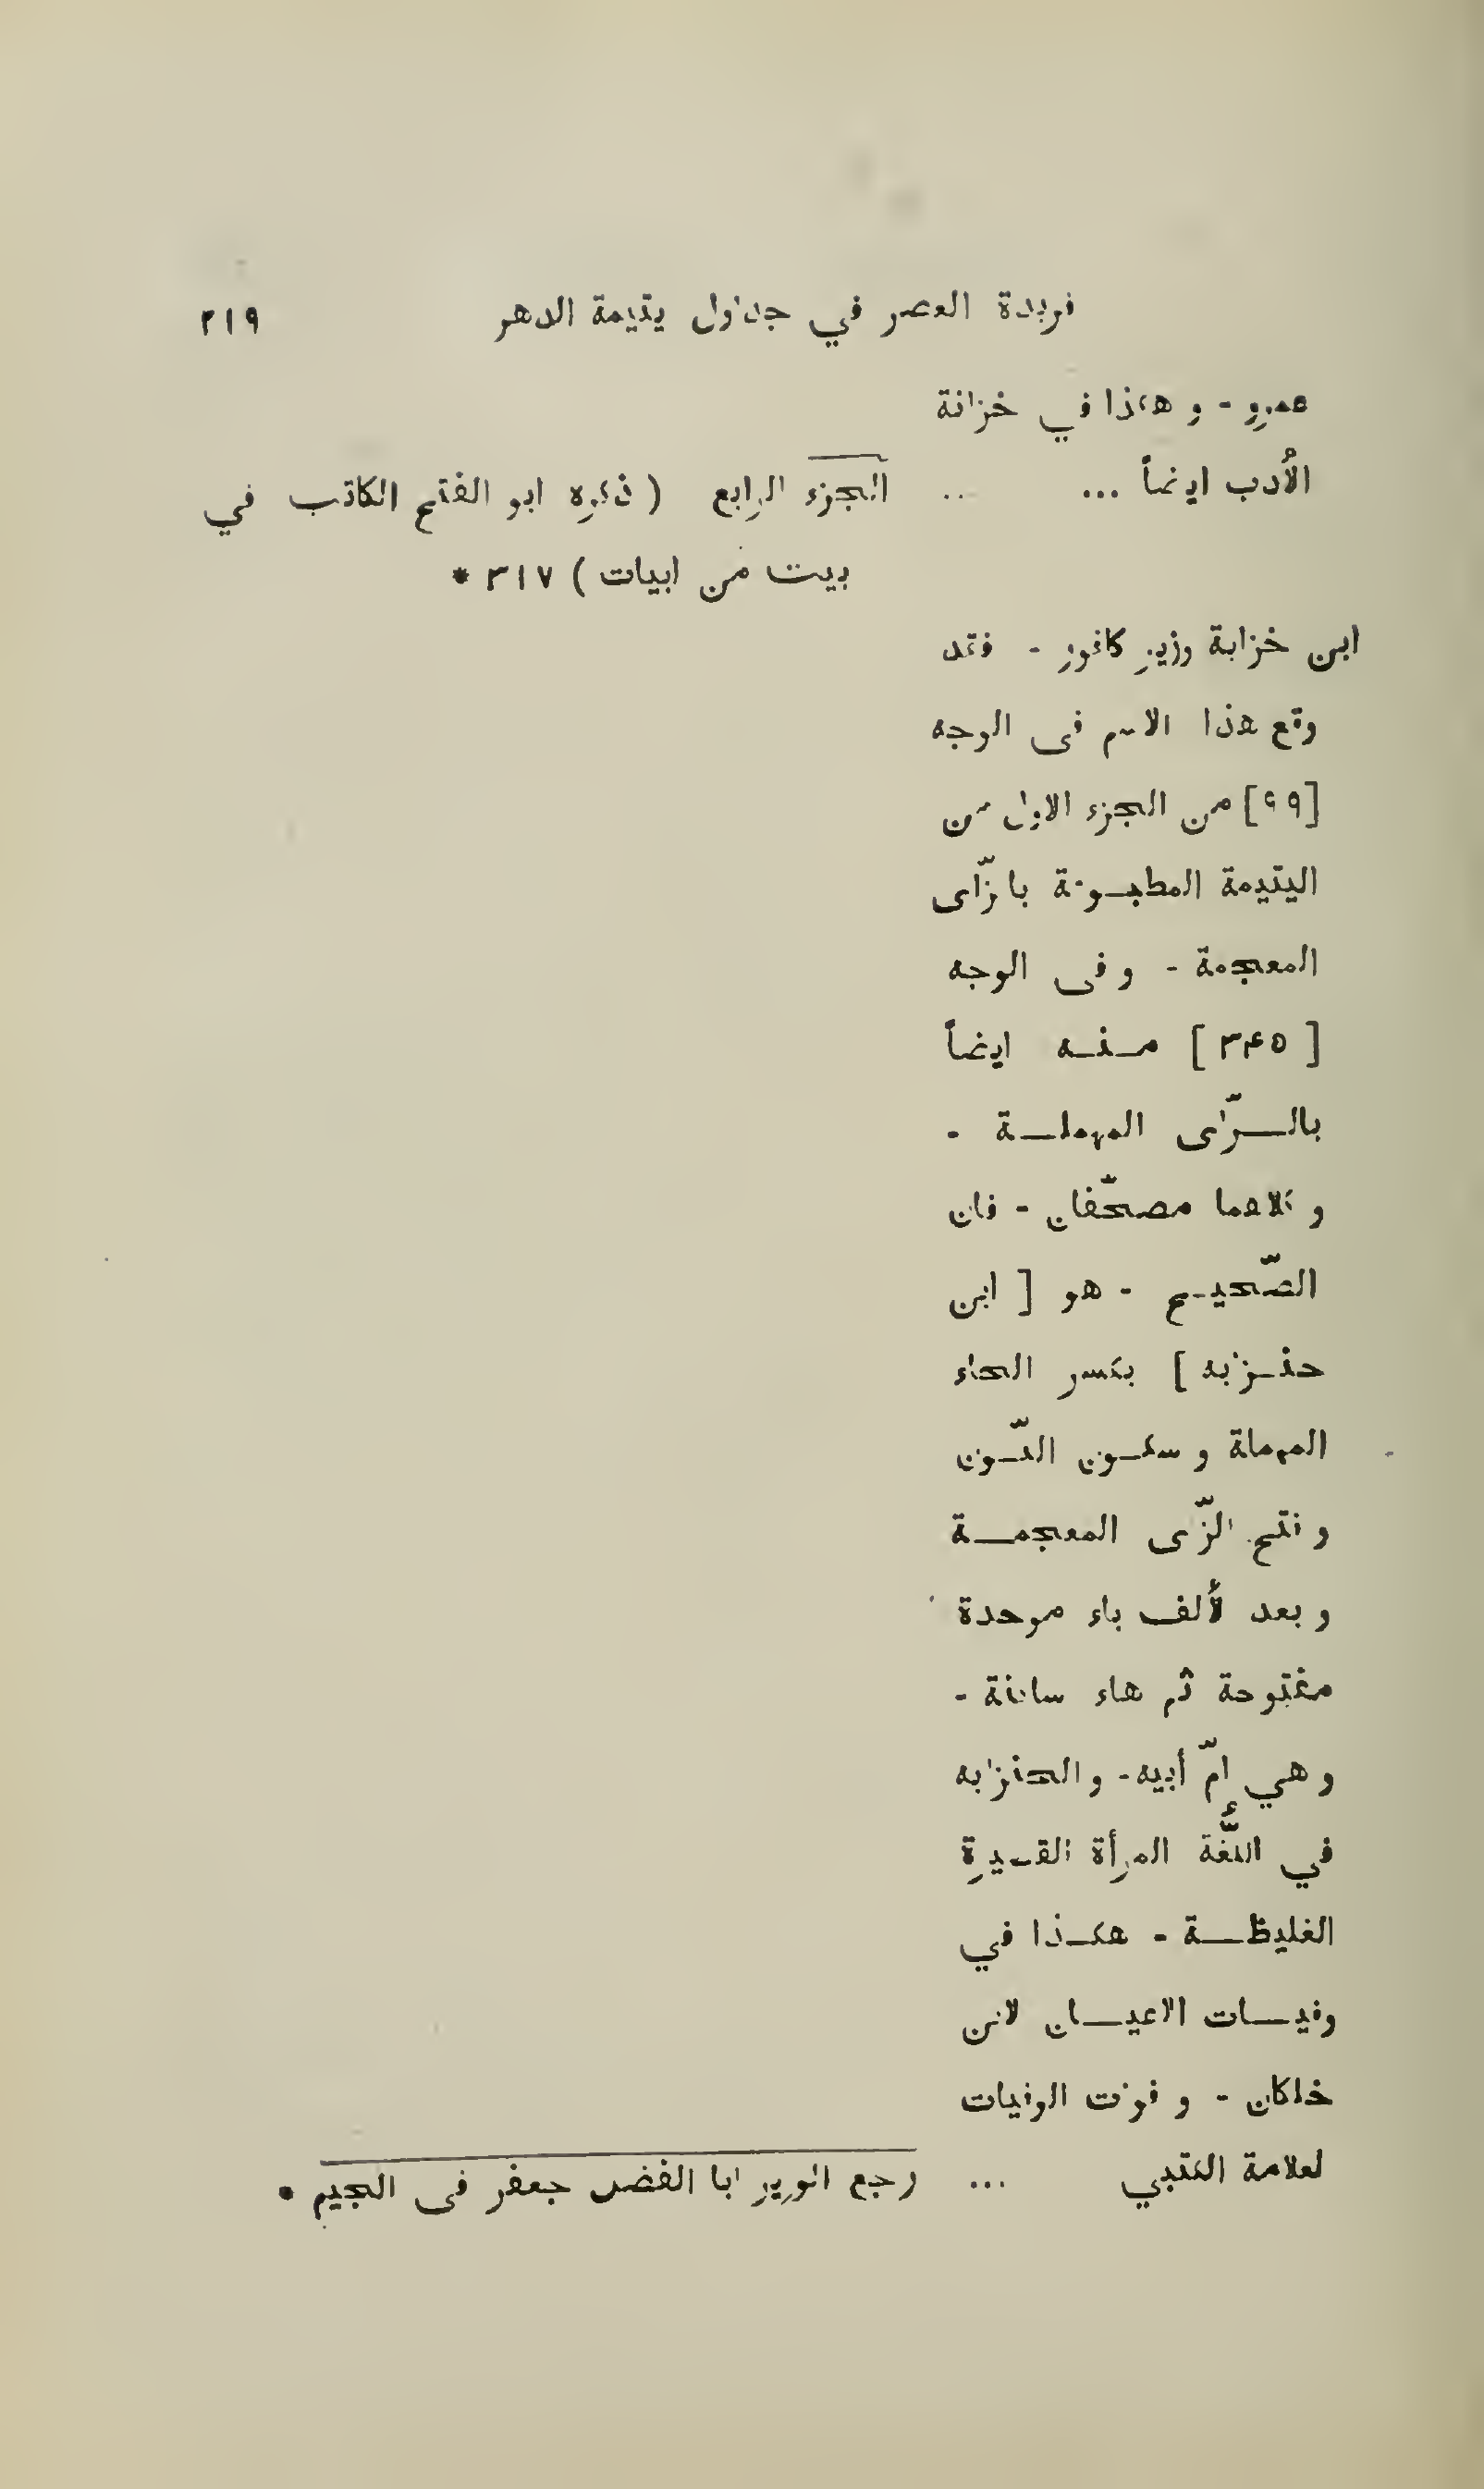 فريدة العصر في جداول يتيمة الدهر ٢١٩
عمرو - و هكذا في خزانة
الأدب ايضاً ... .. الجزء الرابع ( ذكره ابو الفتح الكاتب في
بيت من ابيات ) ٣١٧ *
ابن خزابة وزير كافور - فقد
وقع هذا الاسم فى الوجه
[٩٩] من الجزء الاول من
اليتيمة المطبوعة بالزّاى
المعجمة - و فى الوجه
[ ٣۴٥ ] منه ايضاً
بالرّاى المهملة -
و كلاهما مصحّفان - فان
الصّحيح - هو [ ابن
حنزابه ] بكسر الحاء
المهملة و سكون النّون
و فتح الزّاى المعجمة
و بعد لألف باء موحدة
مفتوحة ثم هاء ساكنة -
و هي امّ أبيه - و الحنزابه
في اللّغة المرأة القصيرة
الغليظة - هكذا في
وفيات الاعيان لابن
خلكان - و فوات الوفيات
لعلامة الكتبي ... رجع الوزير ابا الفضل جعفر فى الجيم *